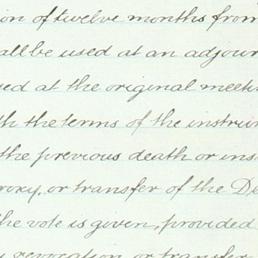 ion of twelve months from
all be used at an adjour
ed at the original meeti
th the terms of the instru
the previous death or ins
roxy, or transfer of the De
he vote is given, provided
revocation or transfer